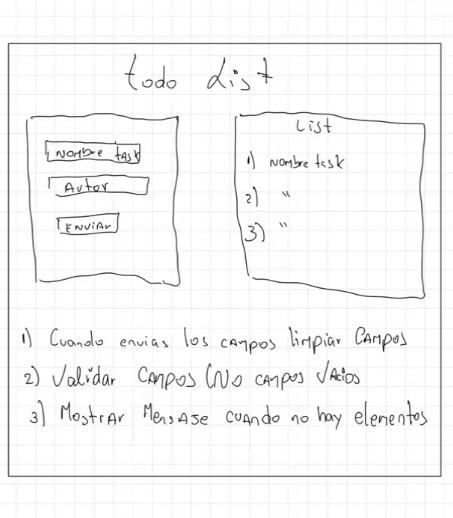 todo List
Nombre task
Autor
Enviar
List
1) Nombre task
2) "
3) "
1) Cuando envias los campos limpiar Campos
2) Validar Campos (No campos Vacios
3) Mostrar Mensaje cuando no hay elementos